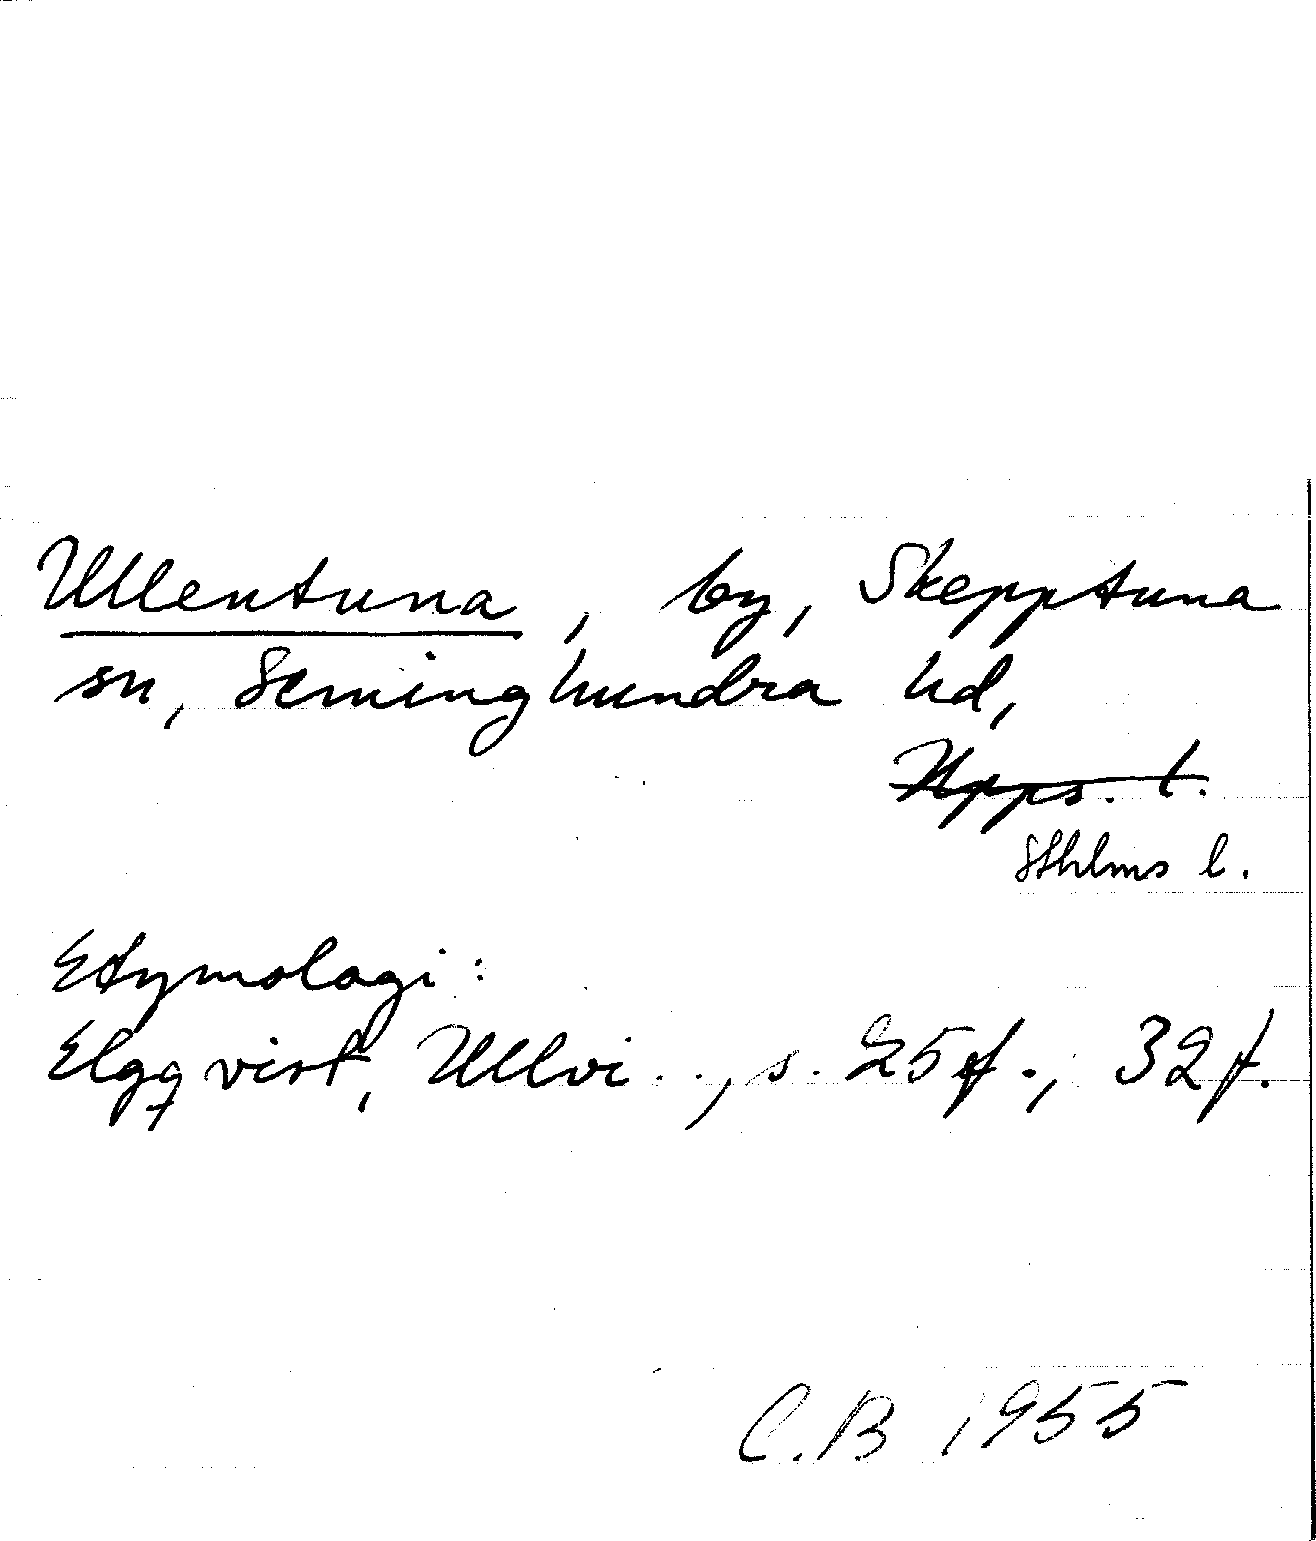 Ullentuna, by, Skepptuna
sn, Seminghundra hd,
Upps. l.
Sthlms l.
Etymologi:
Elgqvist, Ullvi . ., s. 25 f., 32 f.
C.B 1955